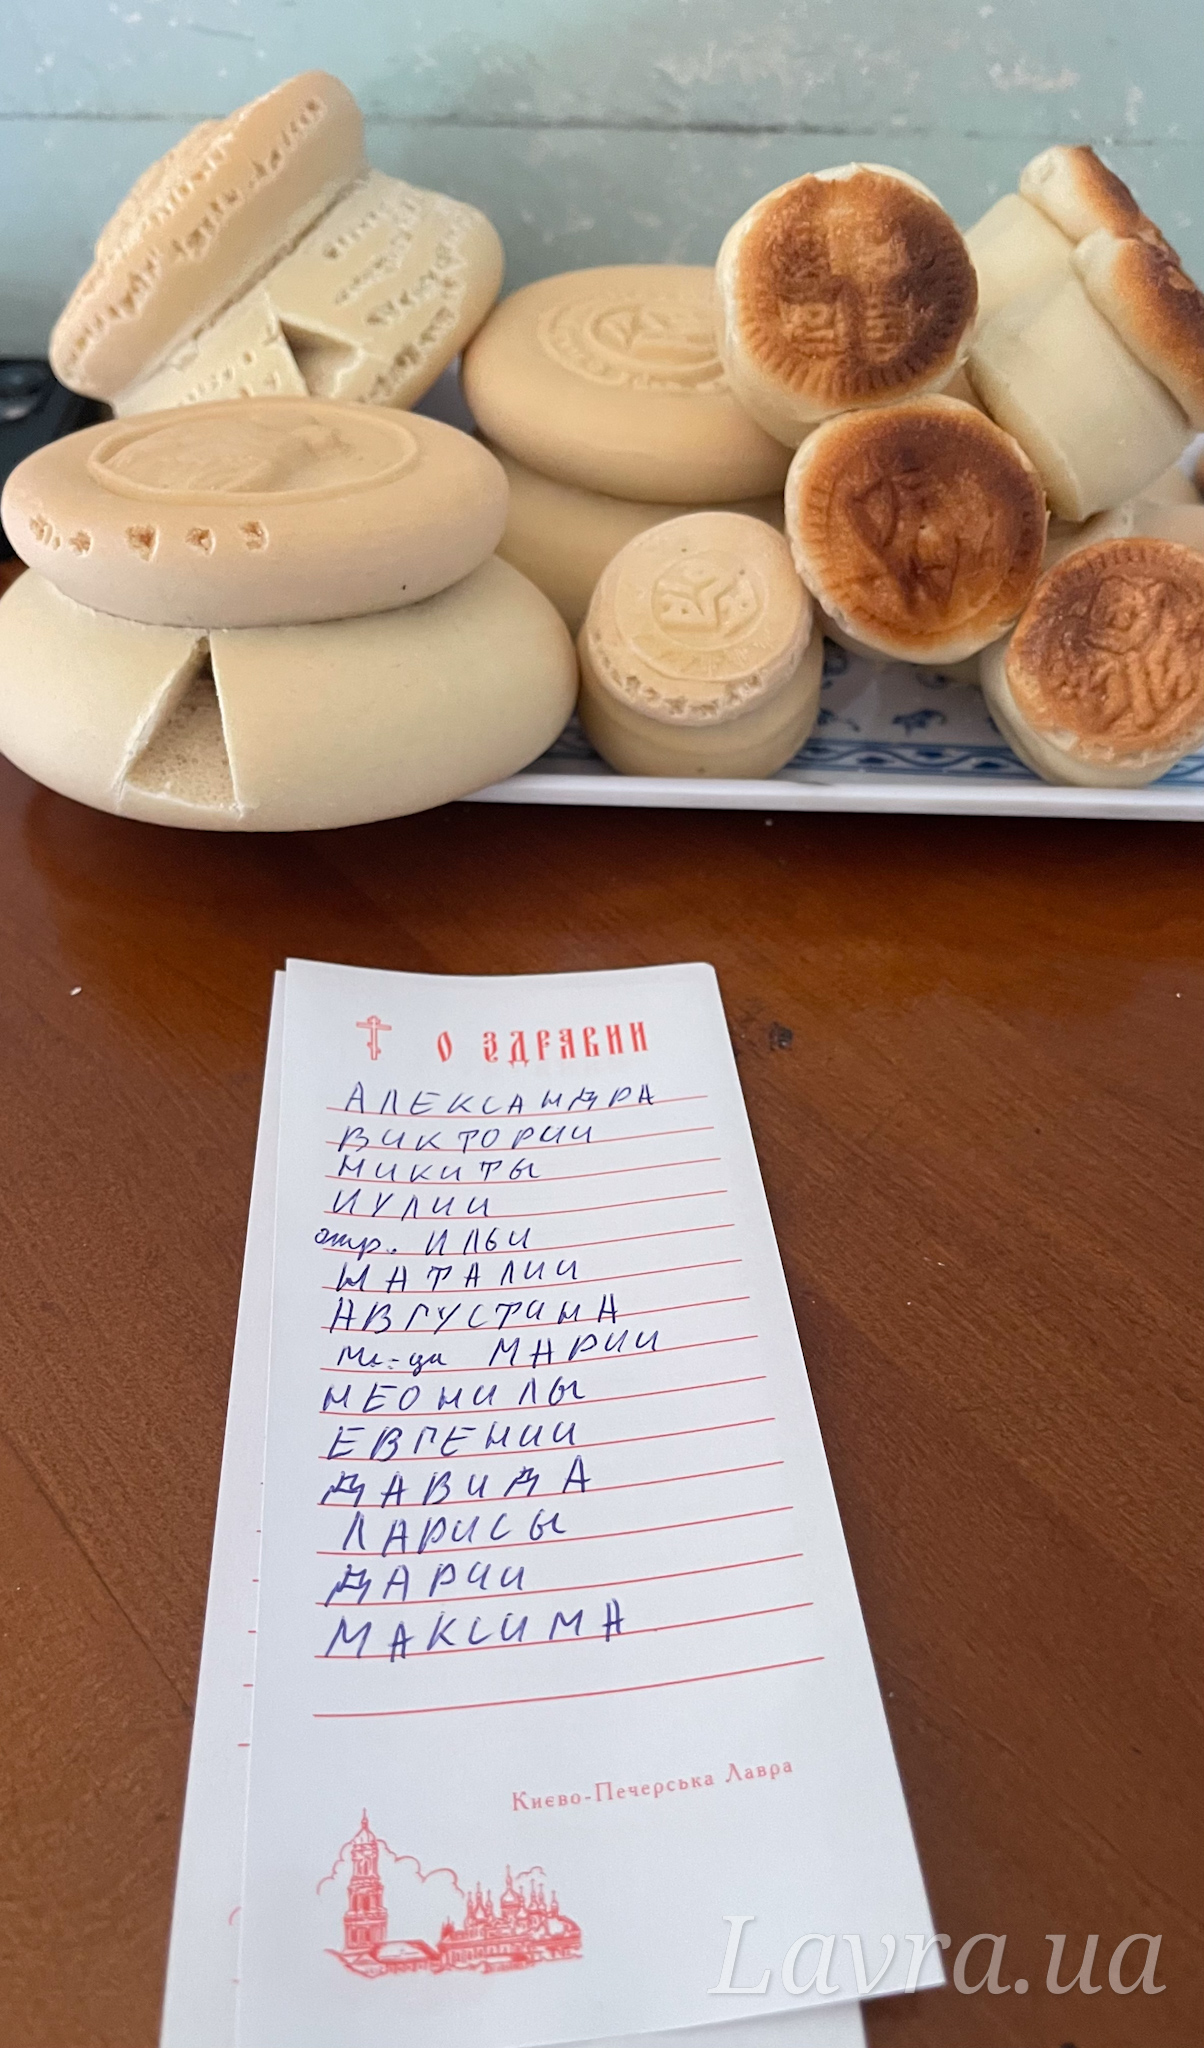 О ЗДРАВИИ
АЛЕКСАНДРА
ВИКТОРИИ
НИКИТЫ
ИУЛИИ
отр. ИЛЬИ
НАТАЛИИ
АВГУСТИНА
мл-ца МАРИИ
НЕОНИЛЫ
ЕВГЕНИИ
ДАВИДА
ЛАРИСЫ
ДАРИИ
МАКСИМА
Києво-Печерська Лавра
Lavra.ua